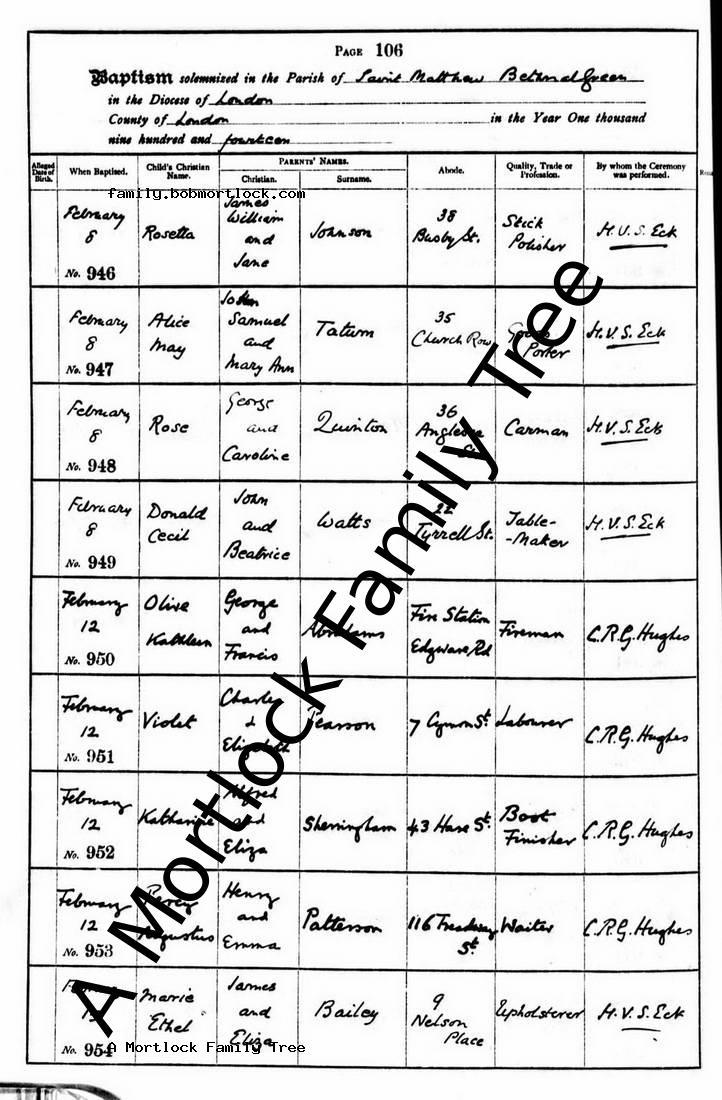 PAGE 106
Baptism solemnized in the Parish of Saint Matthew Bethnal Green
in the Diocese of London
County of London in the Year One thousand
nine hundred and fourteen
Alleged Date of Birth. When Baptised. Child's Christian Name. PARENTS' NAMES. Christian. Surname. Abode. Quality, Trade or Profession. By whom the Ceremony was performed.
family.bobmortlock.com
February 8 No. 946 Rosetta James William and Jane Johnson 38 Busby St. Stick Polisher H.V.S. Eck
February 8 No. 947 Alice May John Samuel and Mary Ann Tatum 35 Church Row Goods Porter H.V.S. Eck
February 8 No. 948 Rose George and Caroline Quinton 36 Anglesea St. Carman H.V.S. Eck
February 8 No. 949 Donald Cecil John and Beatrice Watts 22 Tyrrell St. Table-Maker H.V.S. Eck
February 12 No. 950 Olive Kathleen George and Francis Abrahams Fire Station Edgware Rd Fireman C.R.G. Hughes
February 12 No. 951 Violet Charles & Elizabeth Pearson 7 St. Labourer C.R.G. Hughes
February 12 No. 952 Katharine Alfred and Eliza Sherringham 43 Hare St. Boot Finisher C.R.G. Hughes
February 12 No. 953 Percy Augustus Henry and Emma Patterson 116 Treadway St. Waiter C.R.G. Hughes
No. 954 Marrie Ethel James and Eliza Bailey 9 Nelson Place Upholsterer H.V.S. Eck
A Mortlock Family Tree
A Mortlock Family Tree